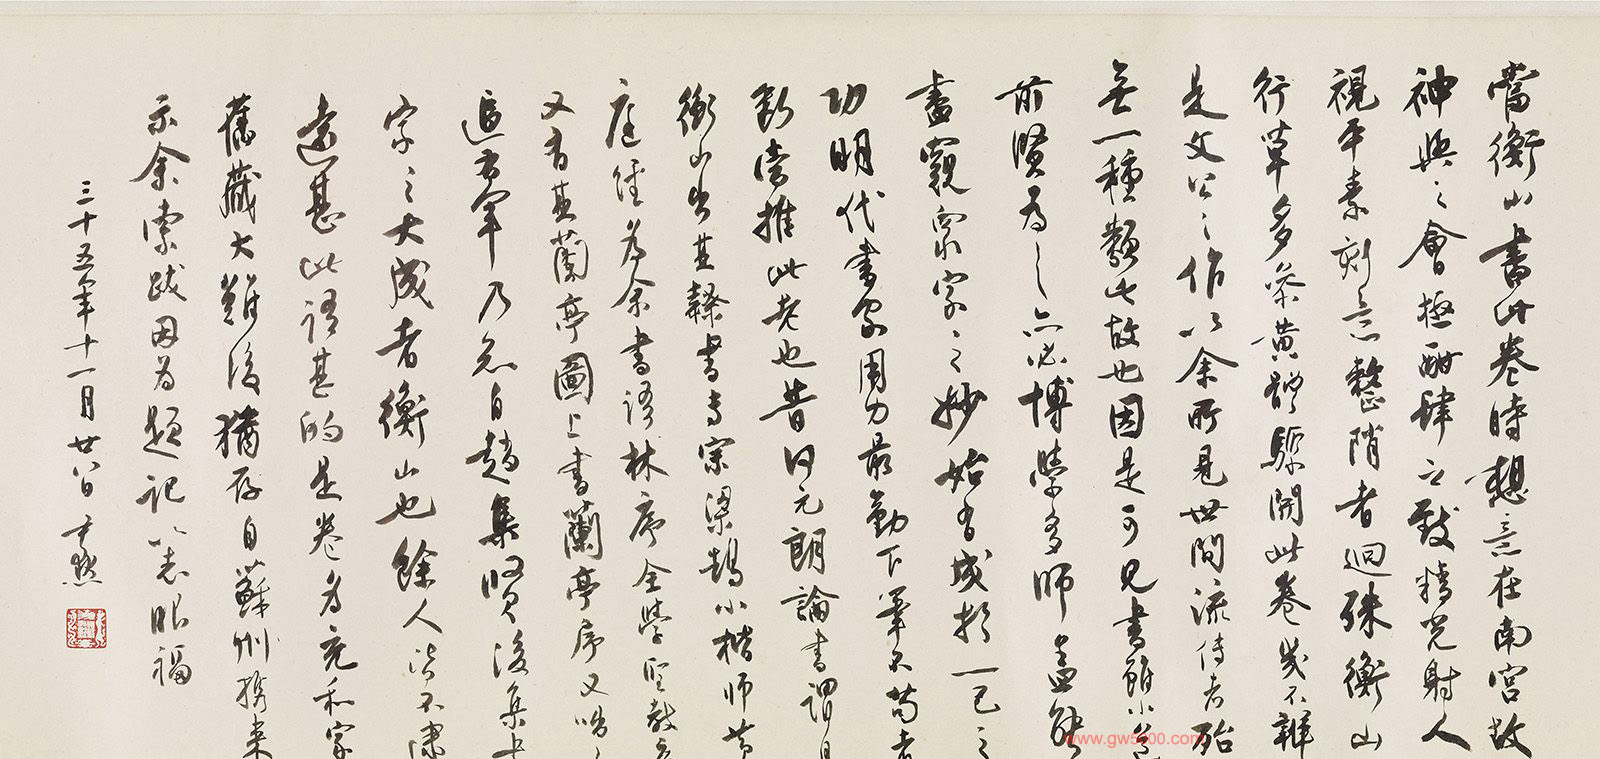 當衡山書此卷時想意在南宮故
神與之會極酣肆之致精光射人
視平素刻意整陗者迥殊衡山
行草多參黃體驟開此卷幾不辨
是文公之作以余所見世間流傳者殆
無一種類此故也因是可見書雖小
前賢為之亦必博學多師盖能
盡窺眾家之妙始有成於一己之
功明代書家用力最勤下筆不苟者
斷當推此老也昔何元朗論書謂
衡山出其隸書專宗梁鵠小楷師黃
庭經為余書語林序全學聖教
又有其蘭亭圖上書蘭亭序又
追右軍乃知自趙集賢後集
字之大成者衡山也餘人皆不
遠甚此語甚的是卷為充和家
舊藏大難後猶存自蘇州攜來
示余索跋因為題記以志眼福
三十五年十一月廿八日 尹默
www.gw5100.com